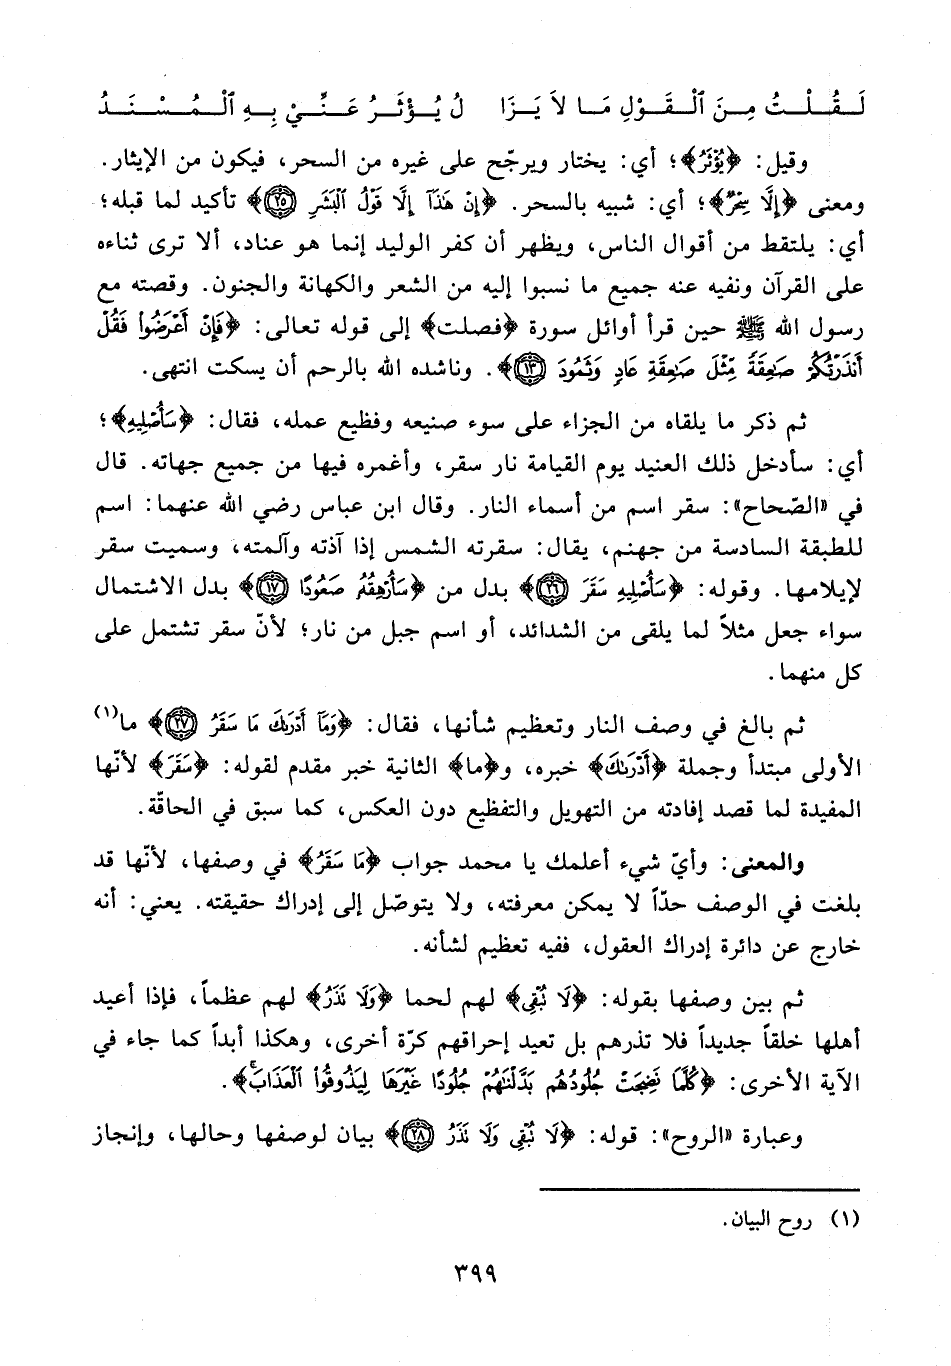 لَـقُـلْـتُ مِـنَ ٱلْـقَـوْلِ مَـا لاَ يَـزَا لُ يُـؤْثَـرُ عَـنِّـيْ بِـهِ ٱلْـمُـسْـنَـدُ
وقيل: ﴿يُؤْثَرُ﴾؛ أي: يختار ويرجّح على غيره من السحر، فيكون من الإيثار.
ومعنى ﴿إِلَّا سِحْرٌ﴾؛ أي: شبيه بالسحر. ﴿إِنْ هَٰذَآ إِلَّا قَوْلُ ٱلْبَشَرِ ۝٢٥﴾ تأكيد لما قبله؛
أي: يلتقط من أقوال الناس، ويظهر أن كفر الوليد إنما هو عناد، ألا ترى ثناءه
على القرآن ونفيه عنه جميع ما نسبوا إليه من الشعر والكهانة والجنون. وقصته مع
رسول الله ﷺ حين قرأ أوائل سورة ﴿فصلت﴾ إلى قوله تعالى: ﴿فَإِنْ أَعْرَضُوا۟ فَقُلْ
أَنذَرْتُكُمْ صَٰعِقَةً مِّثْلَ صَٰعِقَةِ عَادٍ وَثَمُودَ ۝١٣﴾. وناشده الله بالرحم أن يسكت انتهى.
ثم ذكر ما يلقاه من الجزاء على سوء صنيعه وفظيع عمله، فقال: ﴿سَأُصْلِيهِ﴾؛
أي: سأدخل ذلك العنيد يوم القيامة نار سقر، وأغمره فيها من جميع جهاته. قال
في «الصّحاح»: سقر اسم من أسماء النار. وقال ابن عباس رضي الله عنهما: اسم
للطبقة السادسة من جهنم، يقال: سقرته الشمس إذا آذته وآلمته، وسميت سقر
لإيلامها. وقوله: ﴿سَأُصْلِيهِ سَقَرَ ۝٢٦﴾ بدل من ﴿سَأُرْهِقُهُۥ صَعُودًا ۝١٧﴾ بدل الاشتمال
سواء جعل مثلاً لما يلقى من الشدائد، أو اسم جبل من نار؛ لأنّ سقر تشتمل على
كل منهما.
ثم بالغ في وصف النار وتعظيم شأنها، فقال: ﴿وَمَآ أَدْرَىٰكَ مَا سَقَرُ ۝٢٧﴾ ما(١)
الأولى مبتدأ وجملة ﴿أَدْرَىٰكَ﴾ خبره، و﴿ما﴾ الثانية خبر مقدم لقوله: ﴿سَقَرَ﴾ لأنّها
المفيدة لما قصد إفادته من التهويل والتفظيع دون العكس، كما سبق في الحاقّة.
والمعنى: وأيّ شيء أعلمك يا محمد جواب ﴿مَا سَقَرُ﴾ في وصفها، لأنّها قد
بلغت في الوصف حدّاً لا يمكن معرفته، ولا يتوصّل إلى إدراك حقيقته. يعني: أنه
خارج عن دائرة إدراك العقول، ففيه تعظيم لشأنه.
ثم بين وصفها بقوله: ﴿لَا تُبْقِى﴾ لهم لحما ﴿وَلَا تَذَرُ﴾ لهم عظماً، فإذا أعيد
أهلها خلقاً جديداً فلا تذرهم بل تعيد إحراقهم كرّة أخرى، وهكذا أبداً كما جاء في
الآية الأخرى: ﴿كُلَّمَا نَضِجَتْ جُلُودُهُم بَدَّلْنَٰهُمْ جُلُودًا غَيْرَهَا لِيَذُوقُوا۟ ٱلْعَذَابَ ۚ﴾.
وعبارة «الروح»: قوله: ﴿لَا تُبْقِى وَلَا تَذَرُ ۝٢٨﴾ بيان لوصفها وحالها، وإنجاز
(١) روح البيان.
٣٩٩